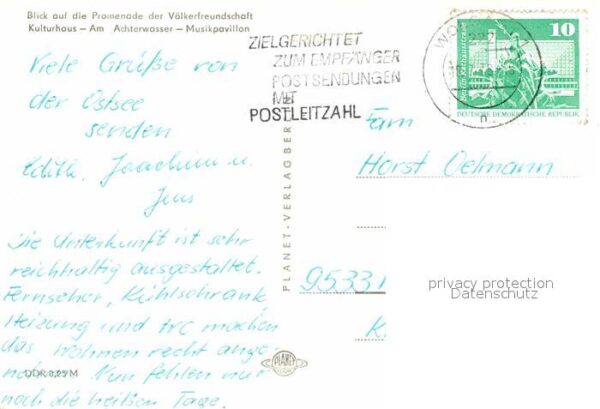 Blick auf die Promenade der Völkerfreundschaft
Kulturhaus — Am Achterwasser — Musikpavillon
Viele Grüße von
der Ostsee
senden
Edith, Joachim u.
Jens
Die Unterkunft ist sehr
reichhaltig ausgestaltet.
Fernseher, Kühlschrank
Heizung und machen
das Wohnen recht ange-
nehm. Nun fehlen nur
noch die heißen Tage.
DDR 0,25 M
PLANET-VERLAG BER
PLANET
ZIELGERICHTET
ZUM EMPFÄNGER
POSTSENDUNGEN
MIT
POSTLEITZAHL
WO
10
DEUTSCHE DEMOKRATISCHE REPUBLIK
Fam
Horst Oelmann
95331
K
privacy protection
Datenschutz